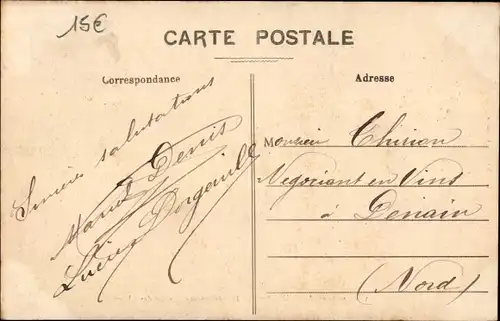 15€
CARTE POSTALE
Correspondance
Adresse
Sincères salutations
Marcel Denis
Lucien
Monsieur Thirion
Négociant en Vins
à Denain
(Nord)